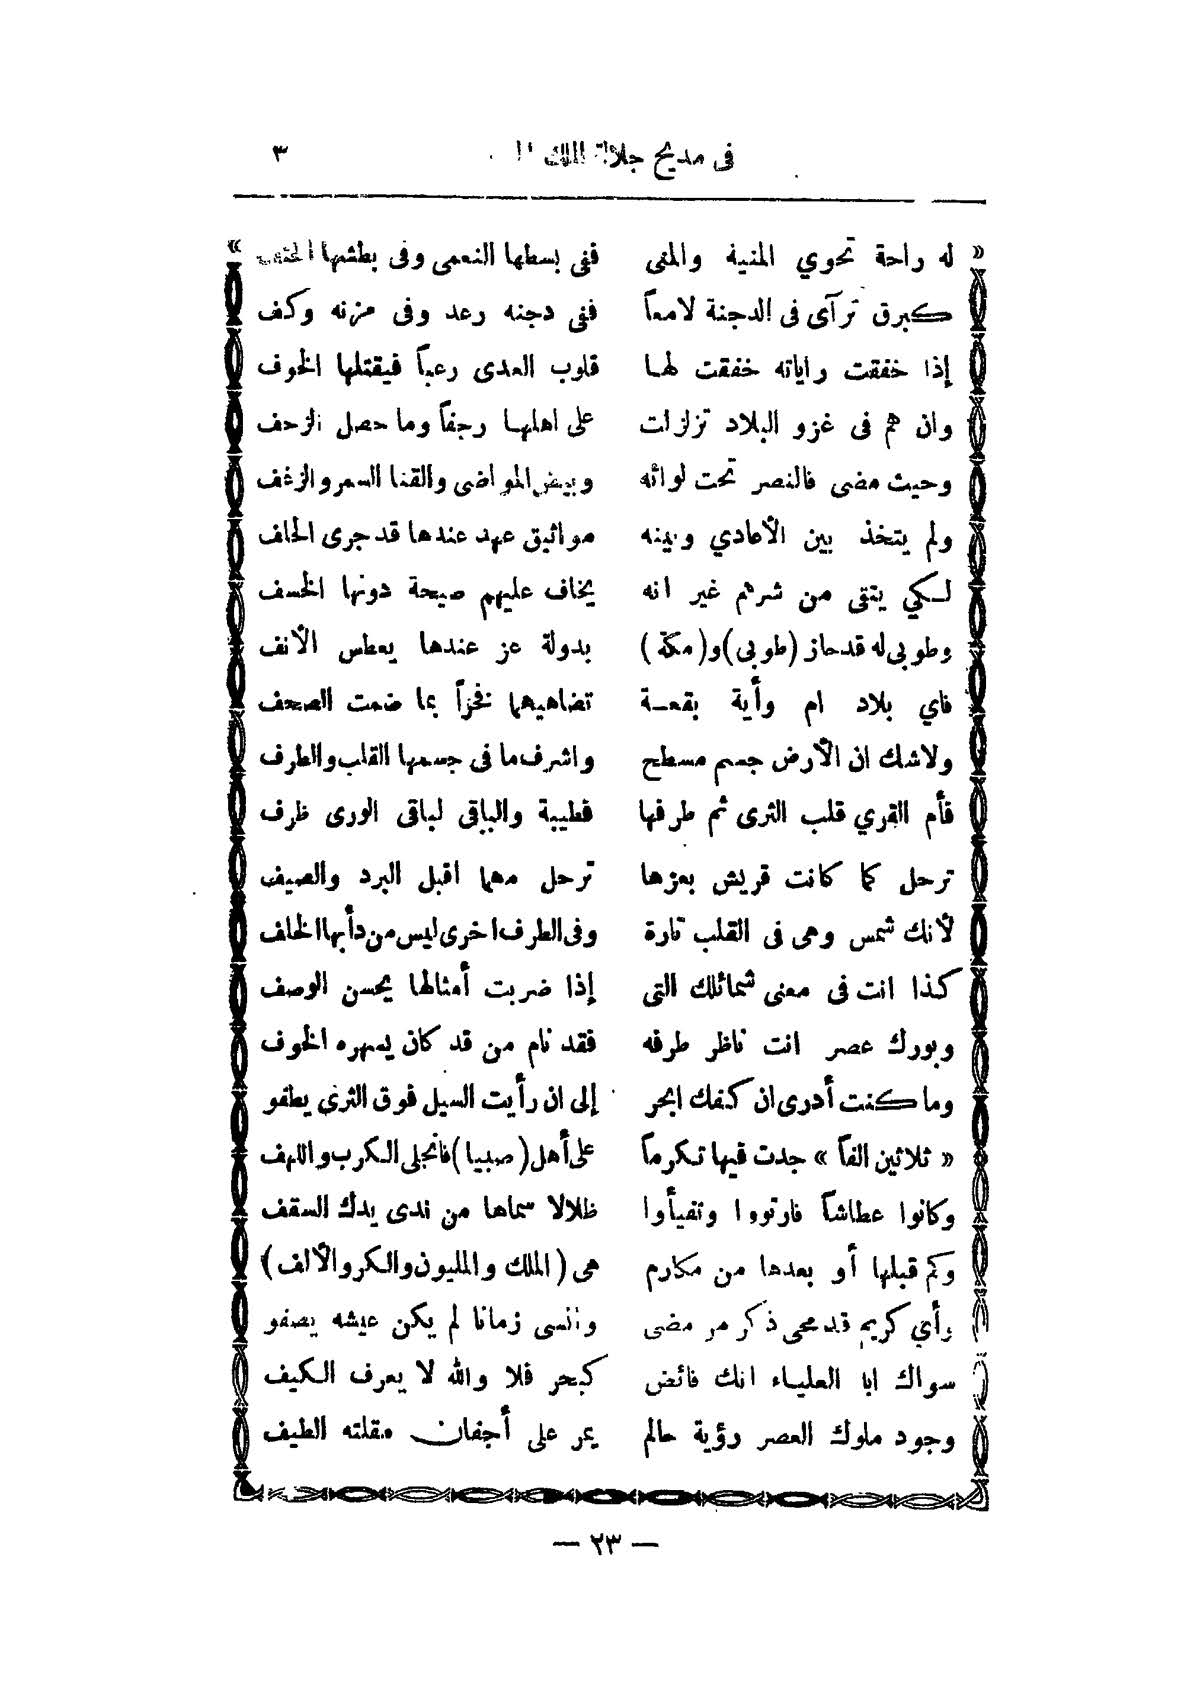 فى مديح جلالة الملك ٣
« له راحة تحوي المنية والمنى ففى بسطها النعمى وفى بطشها الحتف »
كبرق ترآى فى الدجنة لامعاً ففى دجنه رعد وفى مزنه وكف
إذا خفقت راياته خفقت لها قلوب العدى رعباً فيقتلها الخوف
وان هم فى غزو البلاد تزلزلت على اهلها رجفاً وما حصل الزحف
وحيث مضى فالنصر تحت لوائه وبيض المواضى والقنا السمر والزغف
ولم يتخذ بين الأعادي وبينه مواثيق عهد عندها قد جرى الحلف
لكي يتقى من شرهم غير انه يخاف عليهم صيحة دونها الخسف
وطوبى له قد حاز (طوبى) و(مكة) بدولة عز عندها يعطس الأنف
فاي بلاد ام وأية بقعة تضاهيهما فخراً بما ضمت الصحف
ولاشك ان الأرض جسم مسطح واشرف ما فى جسمها القلب والطرف
فأم القري قلب الثرى ثم طرفها فطيبة والباقى لباقى الورى ظرف
ترحل كما كانت قريش بعزها ترحل مهما اقبل البرد والصيف
لأنك شمس وهى فى القلب تارة وفى الطرف اخرى ليس من دأبها الخلف
كذا انت فى معنى شمائلك التى إذا ضربت أمثالها يحسن الوصف
وبورك عصر انت ناظر طرفه فقد نام من قد كان يسهره الخوف
وما كنت أدرى ان كفك ابحر إلى ان رأيت السيل فوق الثرى يطفو
« ثلاثين الفاً » جدت فيها تكرماً على أهل (صبيا) فانجلى الكرب واللهف
وكانوا عطاشاً فارتووا وتفيأوا ظلالا سماها من ندى يدك السقف
وكم قبلها أو بعدها من مكارم هى (الملك والمليون والكر والألف)
وأي كريم قد محى ذكر من مضى وانسى زمانا لم يكن عيشه يصفو
سواك ابا العلياء انك فائض كبحر فلا والله لا يعرف الكيف
وجود ملوك العصر رؤية حالم يمر على أجفان مقلته الطيف
— ٢٣ —